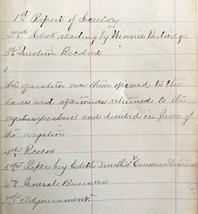 1st Report of Secretary
2nd Select reading by Minnie
3rd Question Resolved
the question was then opened to the
house and afterwards returned to the
regular speakers and decided in favor of
the negative
4th Recess
5th Paper by Edith Smith & Emma
6th General Business
7th Adjournment